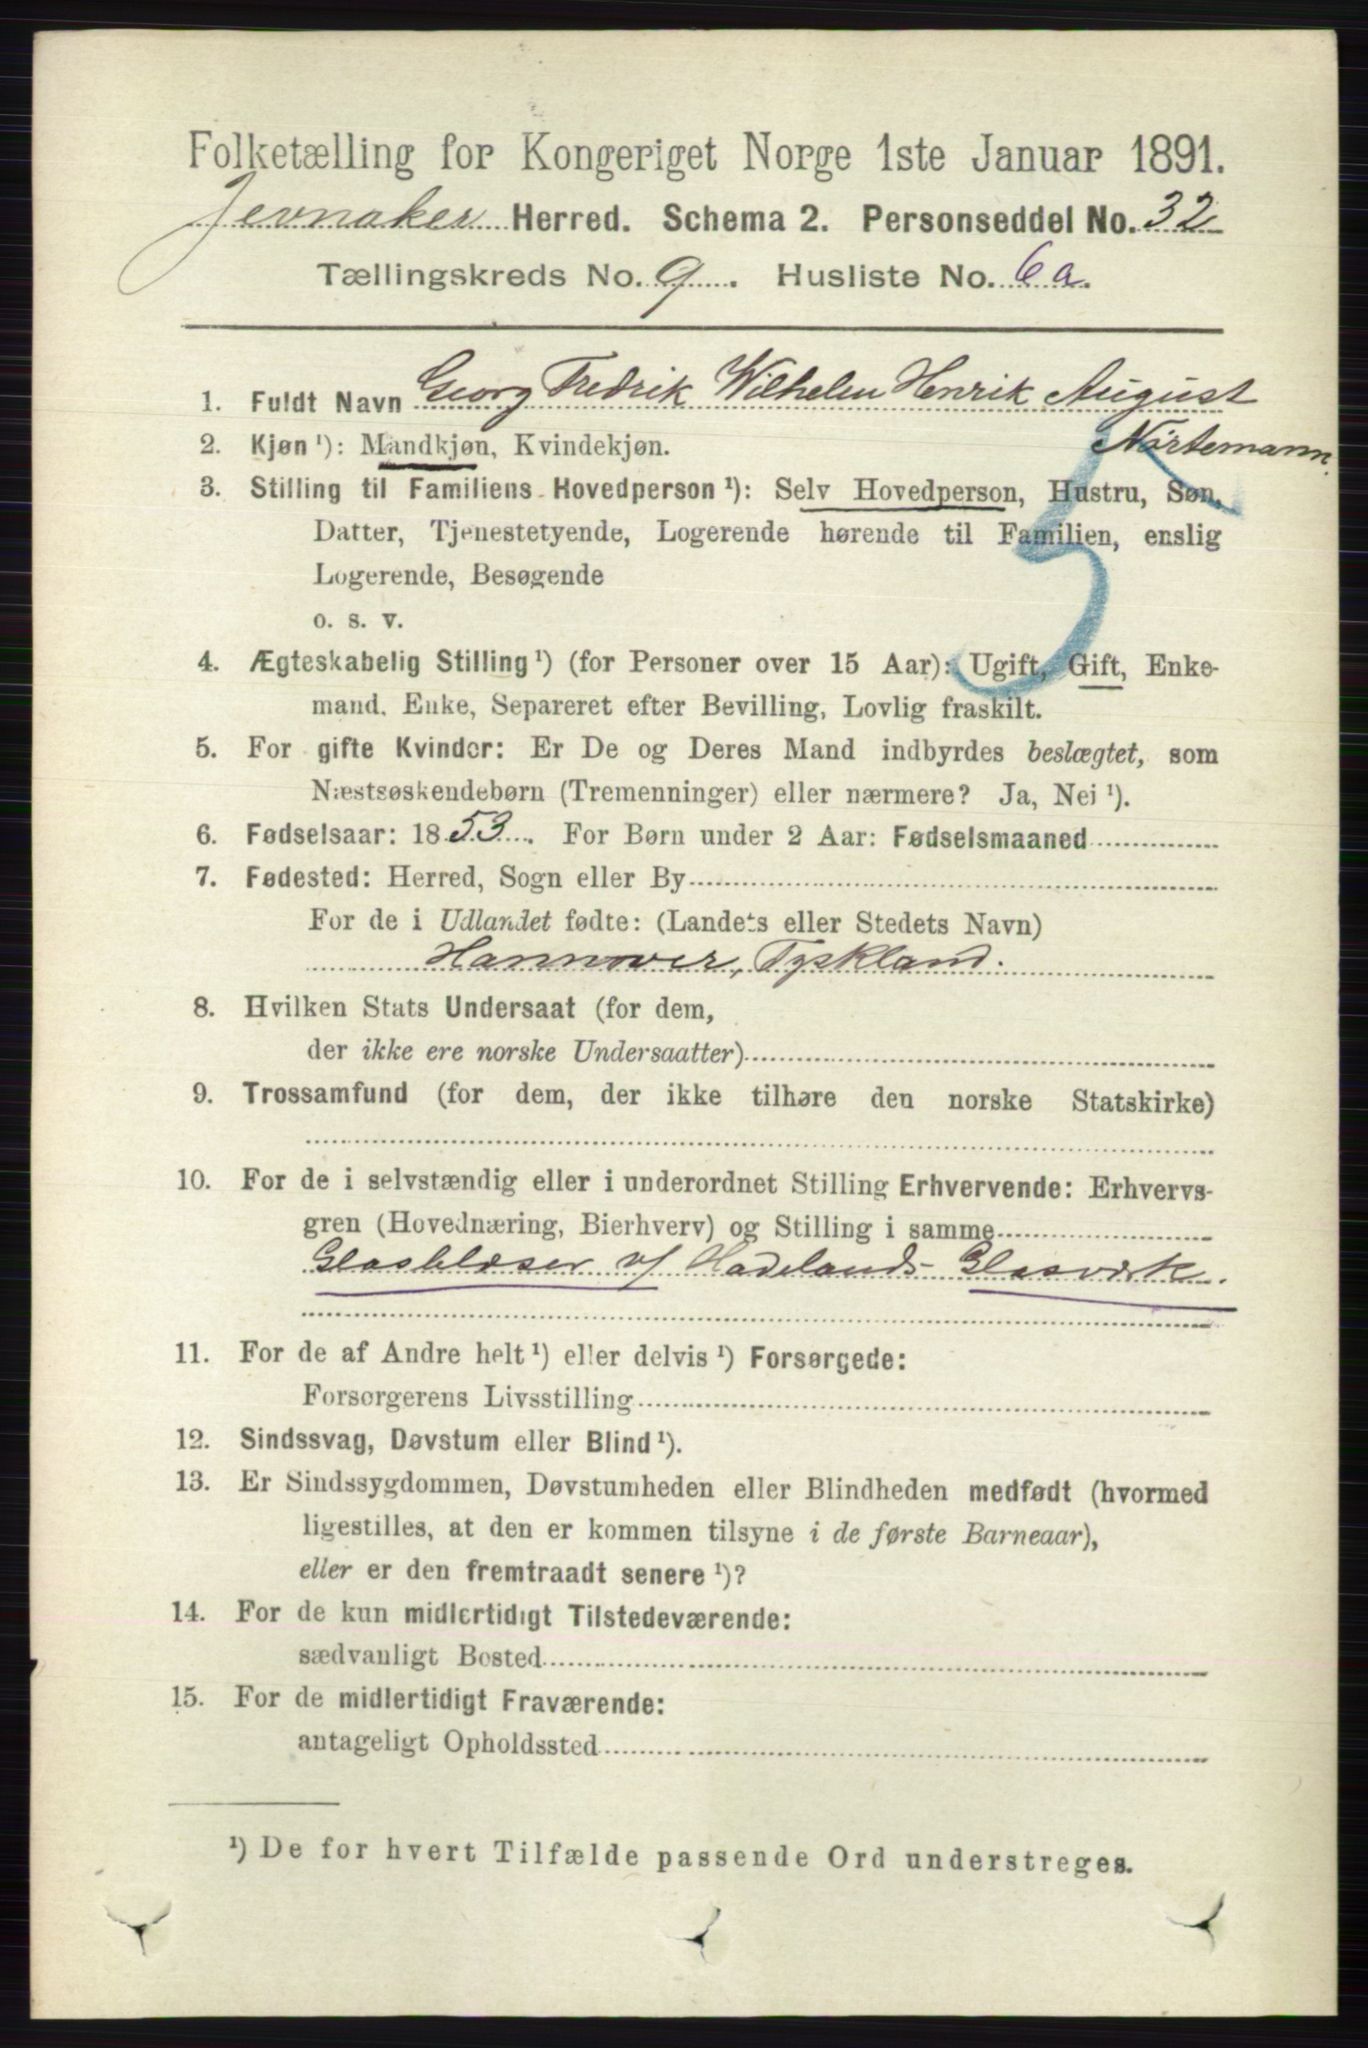 Folketælling for Kongeriget Norge 1ste Januar 1891.
Jevnaker Herred. Schema 2. Personseddel No. 32
Tællingskreds No. 9. Husliste No. 6a.
1. Fuldt Navn Georg Fredrik Wilhelm Henrik August
Nørtemann.
2. Kjøn ¹): Mandkjøn, Kvindekjøn.
3. Stilling til Familiens Hovedperson ¹): Selv Hovedperson, Hustru, Søn,
Datter, Tjenestetyende, Logerende hørende til Familien, enslig
Logerende, Besøgende
o. s. v.
4. Ægteskabelig Stilling ¹) (for Personer over 15 Aar): Ugift, Gift, Enke-
mand, Enke, Separeret efter Bevilling, Lovlig fraskilt.
5. For gifte Kvinder: Er De og Deres Mand indbyrdes beslægtet, som
Næstsøskendebørn (Tremenninger) eller nærmere? Ja, Nei ¹).
6. Fødselsaar: 1853. For Børn under 2 Aar: Fødselsmaaned
7. Fødested: Herred, Sogn eller By
For de i Udlandet fødte: (Landets eller Stedets Navn)
Hannover, Tyskland.
8. Hvilken Stats Undersaat (for dem,
der ikke ere norske Undersaatter)
9. Trossamfund (for dem, der ikke tilhøre den norske Statskirke)
10. For de i selvstændig eller i underordnet Stilling Erhvervende: Erhvervs-
gren (Hovednæring, Bierhverv) og Stilling i samme
Glasblæser v/ Hadelands Glasværk.
11. For de af Andre helt ¹) eller delvis ¹) Forsørgede:
Forsørgerens Livsstilling
12. Sindssvag, Døvstum eller Blind ¹).
13. Er Sindssygdommen, Døvstumheden eller Blindheden medfødt (hvormed
ligestilles, at den er kommen tilsyne i de første Barneaar),
eller er den fremtraadt senere ¹)?
14. For de kun midlertidigt Tilstedeværende:
sædvanligt Bosted
15. For de midlertidigt Fraværende:
antageligt Opholdssted
¹) De for hvert Tilfælde passende Ord understreges.